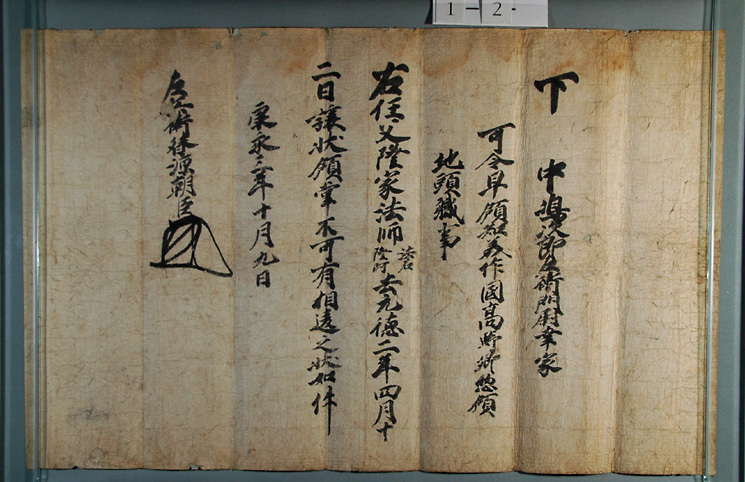 1-2-
下　中嶋次郎左衛門尉幸家
可令早領知美作國高野郷惣領
地頭職事
右任父隆家法師
法名
隆阿
去元徳二年四月十
二日譲状領掌不可有相違之状如件
康永三年十月九日
左兵衛督源朝臣